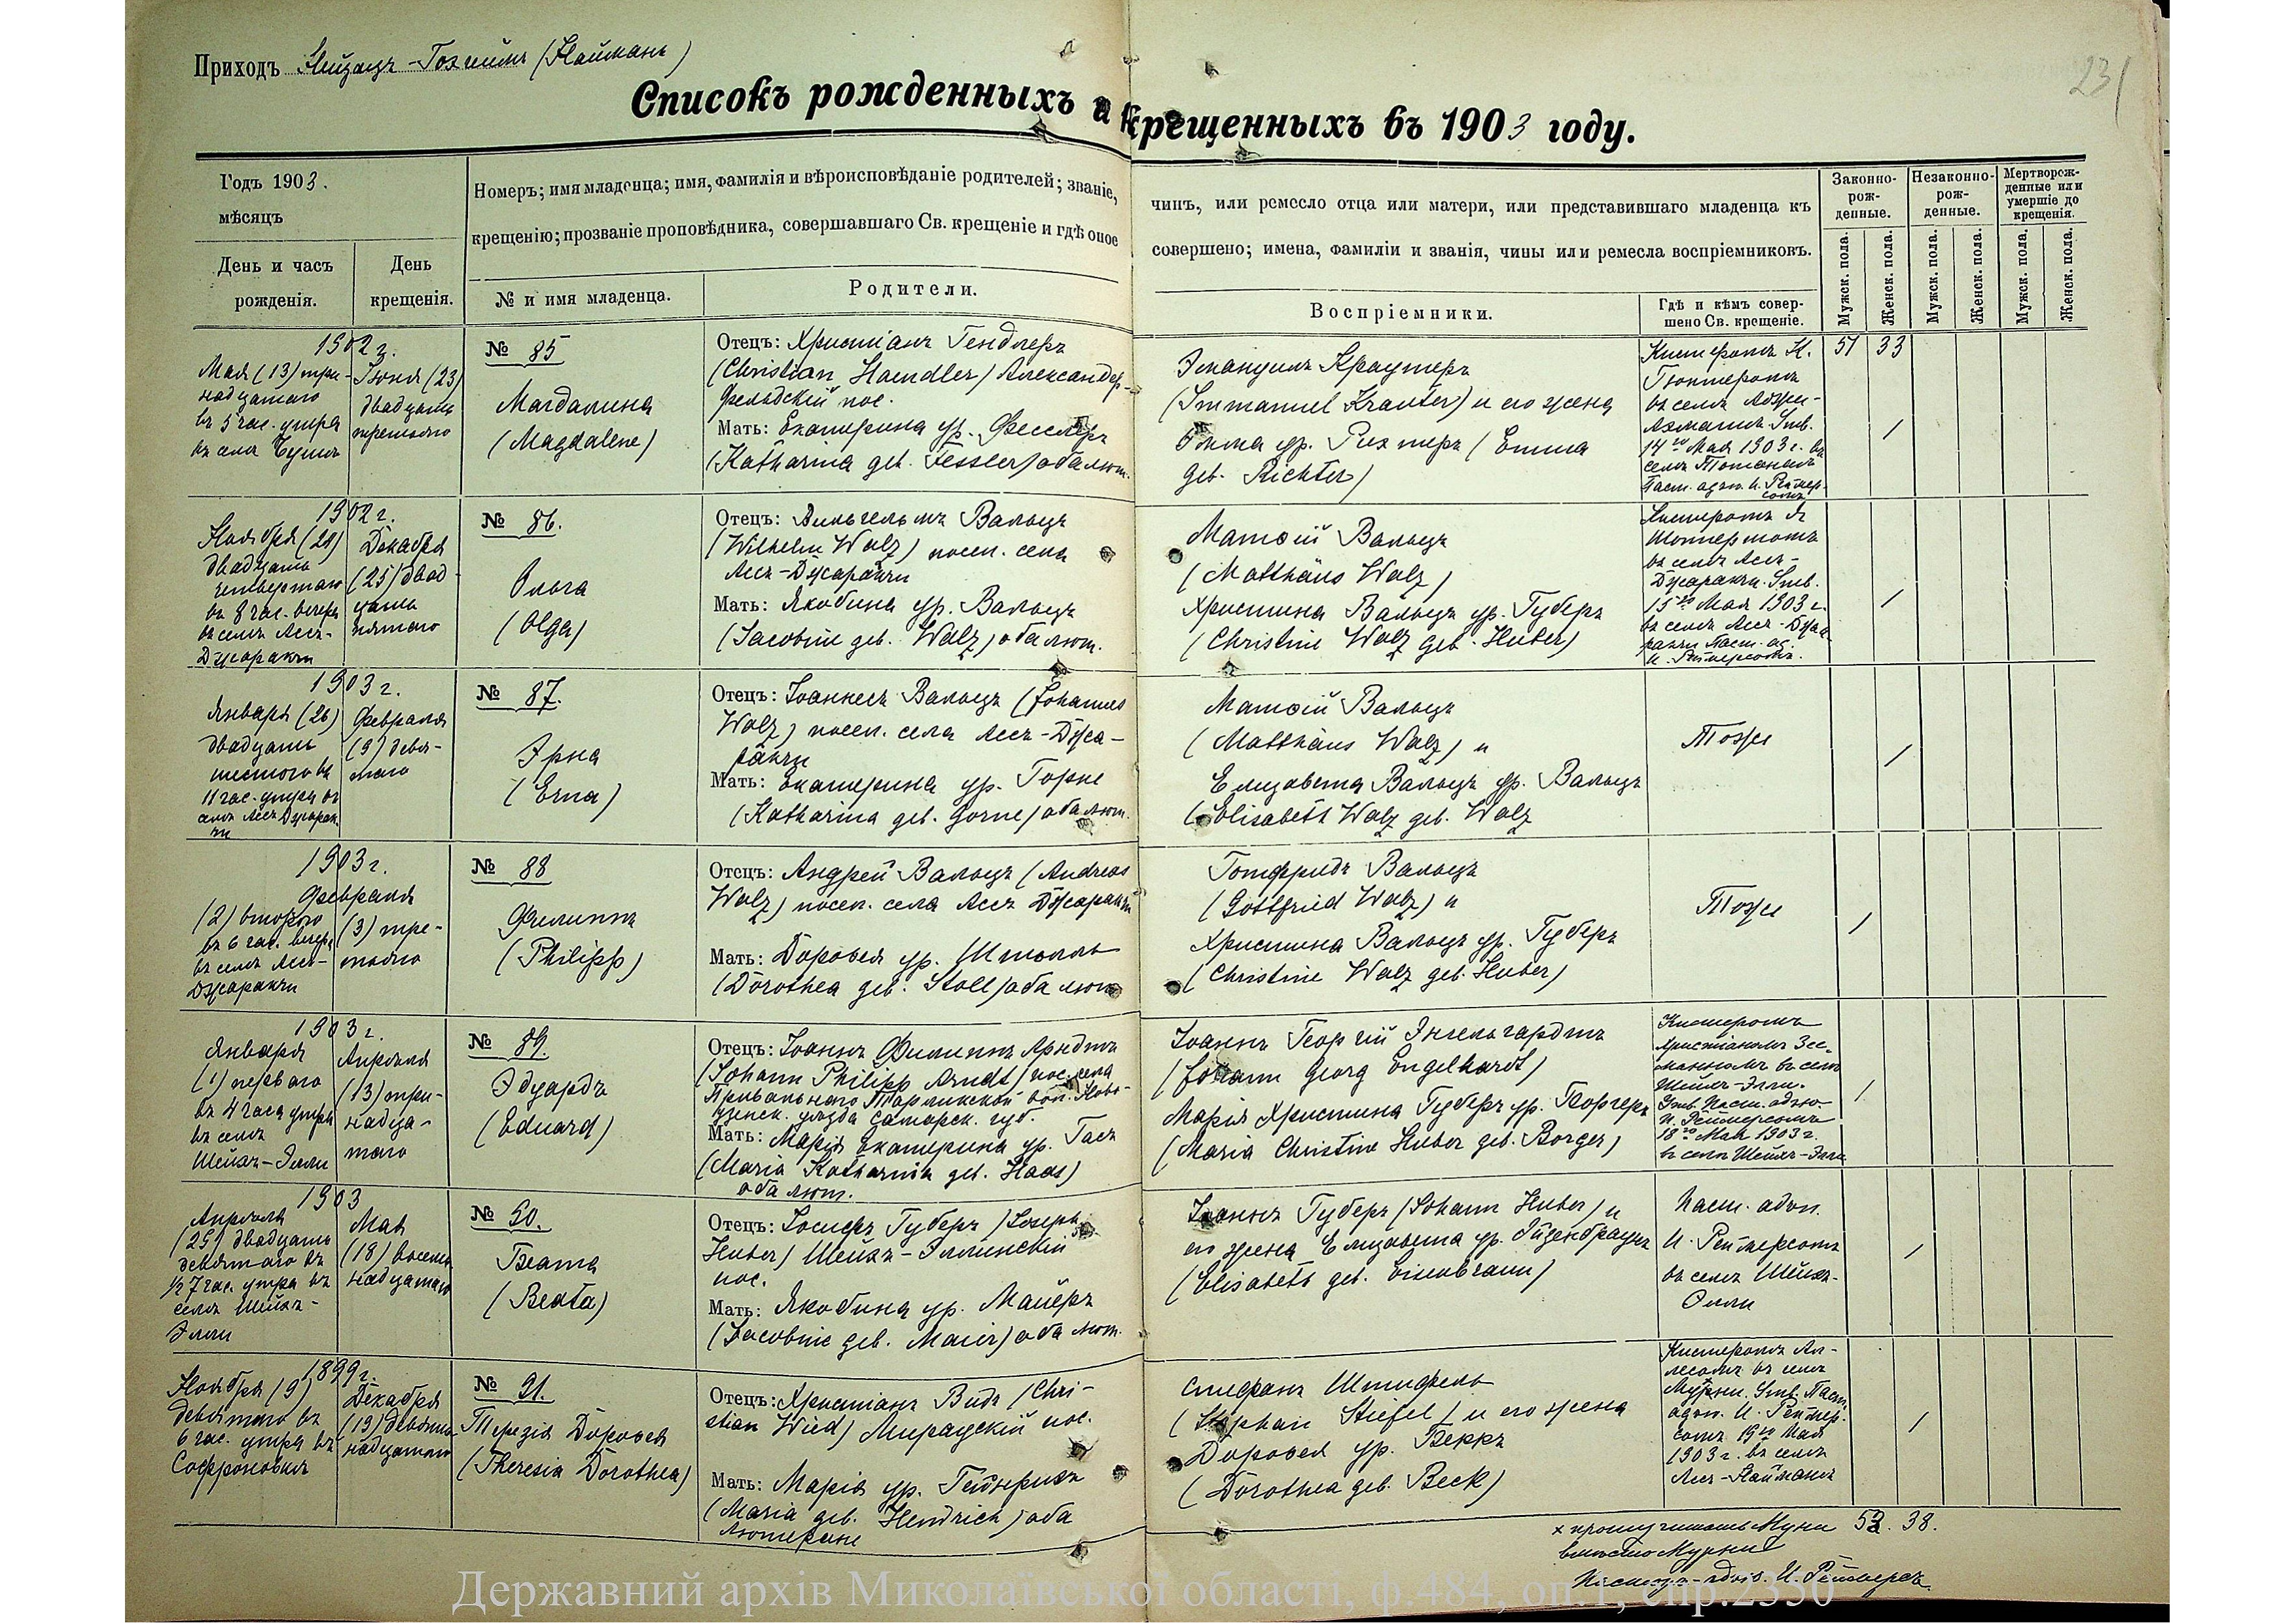 Приходъ Нейзацъ-Гохгеймъ (Найманъ)
231
Списокъ рожденныхъ и крещенныхъ въ 1903 году.
Годъ 1903.
мѣсяцъ
День и часъ
рожденія.
День
крещенія.
Номеръ; имя младенца; имя, фамилія и вѣроисповѣданіе родителей; званіе,
крещенію; прозваніе проповѣдника, совершавшаго Св. крещеніе и гдѣ оное
№ и имя младенца.
Родители.
чинъ, или ремесло отца или матери, или представившаго младенца къ
совершено; имена, фамиліи и званія, чины или ремесла воспріемниковъ.
Воспріемники.
Гдѣ и кѣмъ совер-
шено Св. крещеніе.
Законно-
рож-
денные.
Незаконно-
рож-
денные.
Мертворож-
денные или
умершіе до
крещенія.
Мужск. пола.
Женск. пола.
Мужск. пола.
Женск. пола.
Мужск. пола.
Женск. пола.
1902 г.
Мая (13) три-
надцатаго
въ 5 час. утра
въ селѣ
Іюня (23)
двадцать
третьяго
№ 85
Магдалина
(Magdalene)
Отецъ: Христіанъ Гендлеръ
(Christian Haendler) Александер-
фельдскій пос.
Мать: Екатерина ур. Фесслеръ
(Katharina geb. Fessler) оба лют.
Эмануилъ Краутеръ
(Immanuel Krauter) и его жена
Эмма ур. Рихтеръ (Emma
geb. Richter)
Кистеромъ К.
Гюнтеромъ
въ селѣ
14го Мая 1903 г. въ
селѣ
Паст. адъю. И. Реймер-
сомъ
51 33
/
1902 г.
Ноября (24)
двадцать
четвертаго
въ 8 час. вечера
въ селѣ Ассъ-
Джаракчи
Декабря
(25) двад-
цать
пятаго
№ 86.
Ольга
(Olga)
Отецъ: Вильгельмъ Вальцъ
(Wilhelm Walz) посел. села
Ассъ-Джаракчи
Мать: Якобина ур. Вальцъ
(Jacobine geb. Walz) оба лют.
Матѳій Вальцъ
(Matthäus Walz)
Христина Вальцъ ур. Губеръ
(Christine Walz geb. Huber)
Кистеромъ
въ селѣ Ассъ-
Джаракчи. Утв.
15го Мая 1903 г.
въ селѣ Ассъ-Джа-
ракчи Паст. ад.
И. Реймерсомъ.
/
1903 г.
Января (26)
двадцать
шестого въ
11 час. утра въ
селѣ Ассъ Джарак-
чи
Февраля
(9) девя-
таго
№ 87.
Эрна
(Erna)
Отецъ: Іоаннесъ Вальцъ (Johannes
Walz) посел. села Ассъ-Джа-
ракчи
Мать: Екатерина ур. Горне
(Katharina geb. Gorne) оба лют.
Матѳій Вальцъ
(Matthäus Walz) и
Елизавета Вальцъ ур. Вальцъ
(Elisabeth Walz geb. Walz
Тоже
/
1903 г.
Февраля
(2) второго
въ 6 час. вечер.
въ селѣ Ассъ-
Джаракчи
(3) тре-
тьяго
№ 88
Филиппъ
(Philipp)
Отецъ: Андрей Вальцъ (Andreas
Walz) посел. села Ассъ Джаракчи
Мать: Доровея ур. Штолль
(Dorothea geb. Stoll) оба лют.
Готфридъ Вальцъ
(Gottfried Walz) и
Христина Вальцъ ур. Губеръ
(Christine Walz geb. Huber)
Тоже
/
1903 г.
Января
(1) перваго
въ 4 часа утра
въ селѣ
Шейхъ-Элли
Апрѣля
(13) три-
надца-
таго
№ 89.
Эдуардъ
(Eduard)
Отецъ: Іоаннъ Филиппъ Арндтъ
(Johann Philipp Arndt) пос. села
Привальнаго Тарликской вол. Ново-
узенск. уѣзда Самарск. губ.
Мать: Марія Екатерина ур. Гасъ
(Maria Katharina geb. Haas)
оба лют.
Іоаннъ Георгій Энгельгардтъ
(Johann Georg Engelhardt)
Марія Христина Губеръ ур. Боргеръ
(Maria Christine Huber geb. Borger)
Кистеромъ
Христіаномъ Зее-
манномъ въ селѣ
Шейхъ-Элли.
Утв. Паст. адъю.
И. Реймерсомъ
18го Мая 1903 г.
въ селѣ Шейхъ-Элли
/
1903
Апрѣля
(29) двадцать
девятаго въ
½ 7 час. утра въ
селѣ Шейхъ-
Элли
Мая
(18) восем-
надцатаго
№ 90.
Беата
(Beata)
Отецъ: Іосифъ Губеръ (Joseph
Huber) Шейхъ-Эллинскій
пос.
Мать: Якобина ур. Майеръ
(Jacobine geb. Maier) оба лют.
Іоаннъ Губеръ (Johann Huber) и
его жена Елизавета ур. Эйзенбраунъ
(Elisabeth geb. Eisenbraun)
Паст. адъю.
И. Реймерсомъ
въ селѣ Шейхъ-
Элли
/
1899 г.
Ноября (9)
девятаго въ
6 час. утра въ
Софроновкѣ
Декабря
(19) девят-
надцатаго
№ 91.
Терезія Доровея
(Theresia Dorothea)
Отецъ: Христіанъ Видъ (Chri-
stian Wied) Мираускій пос.
Мать: Марія ур. Гейнрихъ
(Maria geb. Hendrich) оба
лютеране
Стефанъ Штифель
(Stephan Stiefel) и его жена
Доровея ур. Беккъ
(Dorothea geb. Beck)
Кистеромъ Ал-
лесомъ въ селѣ
Мурни. Утв. Паст.
адъю. И. Реймер-
сомъ 19го Мая
1903 г. въ селѣ
Ассъ-Найманъ
/
52. 38.
× прошу читать Муни
вмѣсто Мурни
адъю. И. Реймерсъ
Державний архів Миколаївської області, ф.484, оп.1, спр.2350